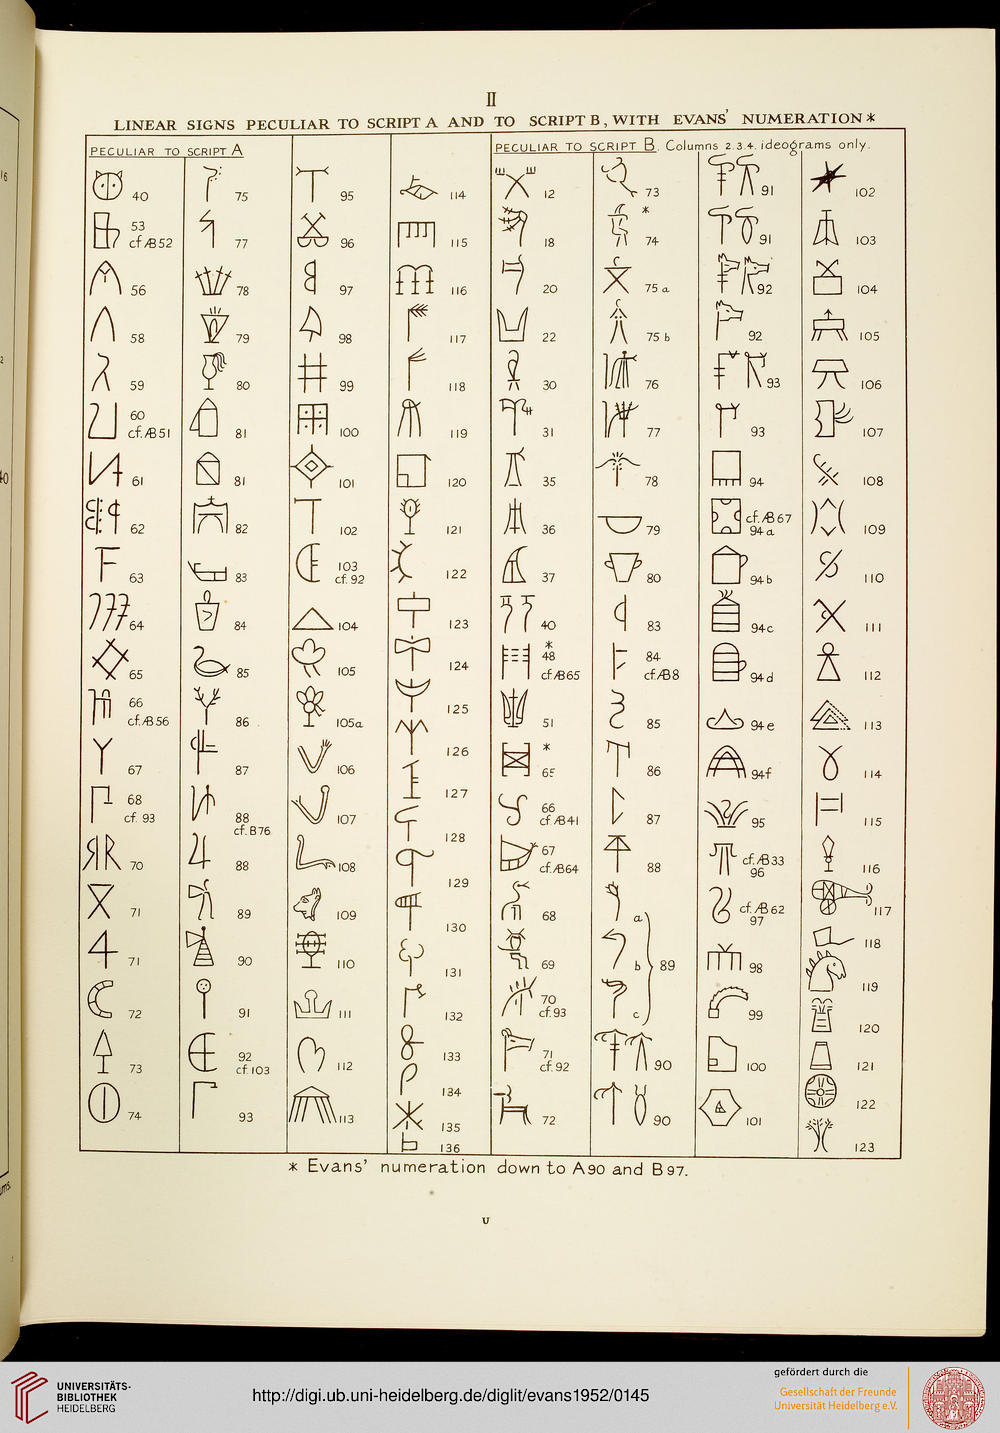 II
LINEAR SIGNS PECULIAR TO SCRIPT A AND TO SCRIPT B, WITH EVANS' NUMERATION *
PECULIAR TO SCRIPT A
40
53
cf. AB 52
56
58
59
60
cf. AB 51
61
62
63
64
65
66
cf. AB 56
67
68
cf. 93
70
71
71
72
73
74
75
77
78
79
80
81
81
82
83
84
85
86
87
88
cf. B76
88
89
90
91
92
cf. 103
93
95
96
97
98
99
100
101
102
103
cf. 92
104
105
105a
106
107
108
109
110
111
112
113
114
115
116
117
118
119
120
121
122
123
124
125
126
127
128
129
130
131
132
133
134
135
136
PECULIAR TO SCRIPT B. Columns 2.3.4. ideograms only.
12
18
20
22
30
31
35
36
37
40
*
48
cf. AB 65
51
*
65
66
cf. AB 41
67
cf. AB 64
68
69
70
cf. 93
71
cf. 92
72
73
*
74
75 a
75 b
76
77
78
79
80
83
84
cf. AB 8
85
86
87
88
a
b
89
c
90
90
91
91
92
92
93
93
94
cf. AB 67
94 a
94 b
94 c
94 d
94 e
94 f
95
cf. AB 33
96
cf. AB 62
97
98
99
100
101
102
103
104
105
106
107
108
109
110
111
112
113
114
115
116
117
118
119
120
121
122
123
* Evans' numeration down to A 90 and B 97.
U
UNIVERSITÄTS-
BIBLIOTHEK
HEIDELBERG
http://digi.ub.uni-heidelberg.de/diglit/evans1952/0145
gefördert durch die
Gesellschaft der Freunde
Universität Heidelberg e.V.